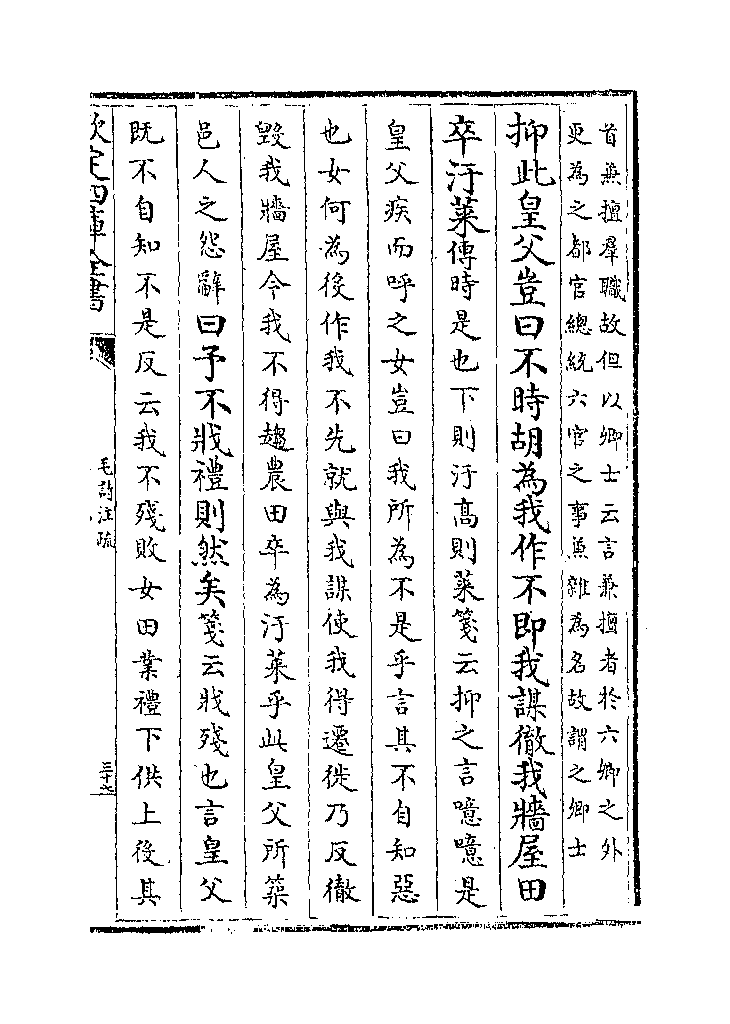 首兼擅羣職故但以卿士云言兼擅者於六卿之外
更為之都官總統六官之事兼雜為名故謂之卿士
抑此皇父豈曰不時胡為我作不即我謀徹我牆屋田
卒汙萊傳時是也下則汙高則萊箋云抑之言噫噫是
皇父疾而呼之女豈曰我所為不是乎言其不自知惡
也女何為役作我不先就與我謀使我得遷徙乃反徹
毀我牆屋今我不得趨農田卒為汙萊乎此皇父所築
邑人之怨辭曰予不戕禮則然矣箋云戕殘也言皇父
既不自知不是反云我不殘敗女田業禮下供上役其
欽定四庫全書
毛詩注疏
三十六